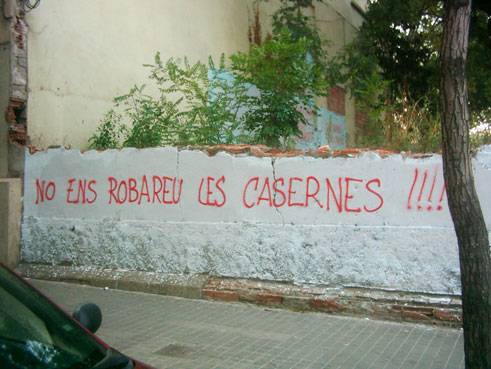 NO ENS ROBAREU LES CASERNES !!!!